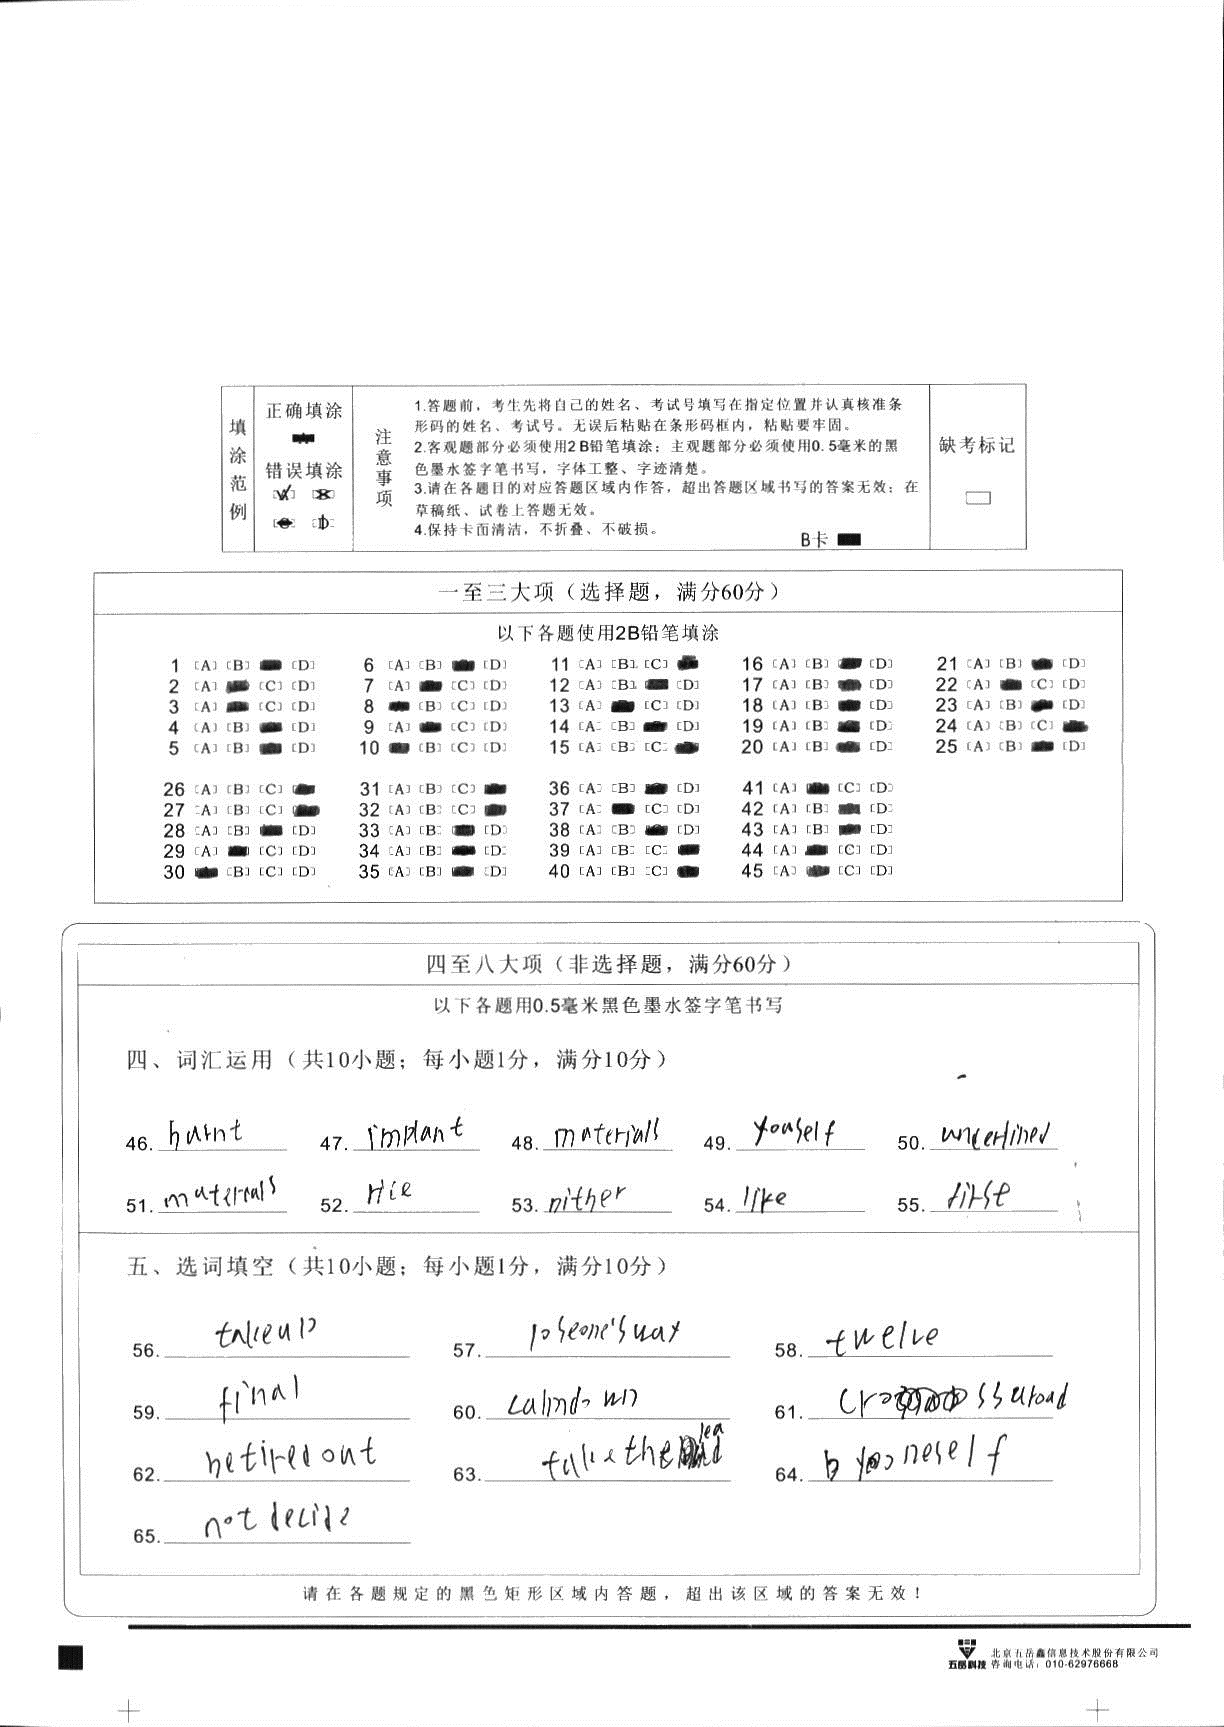 填涂范例
正确填涂
错误填涂
注意事项
1.答题前，考生先将自己的姓名、考试号填写在指定位置并认真核准条
形码的姓名、考试号。无误后粘贴在条形码框内，粘贴要牢固。
2.客观题部分必须使用2B铅笔填涂；主观题部分必须使用0.5毫米的黑
色墨水签字笔书写，字体工整、字迹清楚。
3.请在各题目的对应答题区域内作答，超出答题区域书写的答案无效；在
草稿纸、试卷上答题无效。
4.保持卡面清洁，不折叠、不破损。
B卡
缺考标记
一至三大项（选择题，满分60分）
以下各题使用2B铅笔填涂
1 [A] [B] [D] 6 [A] [B] [D] 11 [A] [B] [C] 16 [A] [B] [D] 21 [A] [B] [D]
2 [A] [C] [D] 7 [A] [C] [D] 12 [A] [B] [D] 17 [A] [B] [D] 22 [A] [C] [D]
3 [A] [C] [D] 8 [B] [C] [D] 13 [A] [C] [D] 18 [A] [B] [D] 23 [A] [B] [D]
4 [A] [B] [D] 9 [A] [C] [D] 14 [A] [B] [D] 19 [A] [B] [D] 24 [A] [B] [C]
5 [A] [B] [D] 10 [B] [C] [D] 15 [A] [B] [C] 20 [A] [B] [D] 25 [A] [B] [D]
26 [A] [B] [C] 31 [A] [B] [C] 36 [A] [B] [D] 41 [A] [C] [D]
27 [A] [B] [C] 32 [A] [B] [C] 37 [A] [C] [D] 42 [A] [B] [D]
28 [A] [B] [D] 33 [A] [B] [D] 38 [A] [B] [D] 43 [A] [B] [D]
29 [A] [C] [D] 34 [A] [B] [D] 39 [A] [B] [C] 44 [A] [C] [D]
30 [B] [C] [D] 35 [A] [B] [D] 40 [A] [B] [C] 45 [A] [C] [D]
四至八大项（非选择题，满分60分）
以下各题用0.5毫米黑色墨水签字笔书写
四、词汇运用（共10小题；每小题1分，满分10分）
46. burnt 47. implant 48. materials 49. youself 50. underlined
51. materials 52. rice 53. nither 54. like 55. first
五、选词填空（共10小题；每小题1分，满分10分）
56. takeup 57. 58. twelve
59. final 60. 61.
62. betired out 63. take the lea 64.
65. not decide
请在各题规定的黑色矩形区域内答题，超出该区域的答案无效！
五岳科技
北京五岳鑫信息技术股份有限公司
咨询电话：010-62976668